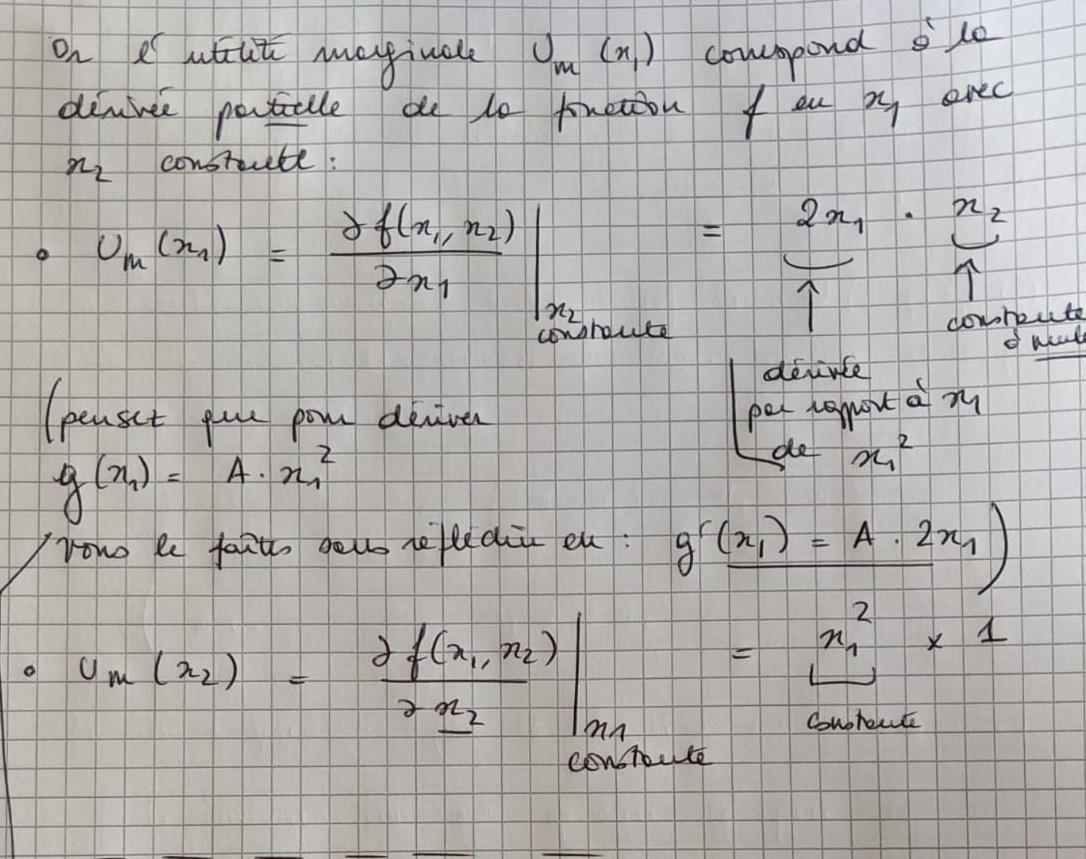 Or l'utilité marginale Um (x1) correspond à la
dérivée partielle de la fonction f en x1 avec
x2 constante :
• Um (x1) = ∂f(x1, x2) / ∂x1 | x2 constante = 2x1 · x2
constante
dérivée
par rapport à x1
de x1²
(pensez que pour dériver
g(x1) = A · x1²
vous le faîtes sans réfléchir en : g'(x1) = A · 2x1)
• Um (x2) = ∂f(x1, x2) / ∂x2 | x1 constante = x1² × 1
constante